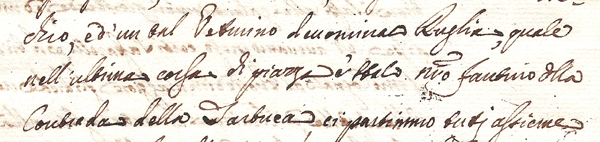 drio, ed'un tal Vetturino denominà Puglia, quale
nell'ultima corsa di piazza è stato nro fantino della
Contrada della Tartuca, ci partimmo tutti assieme